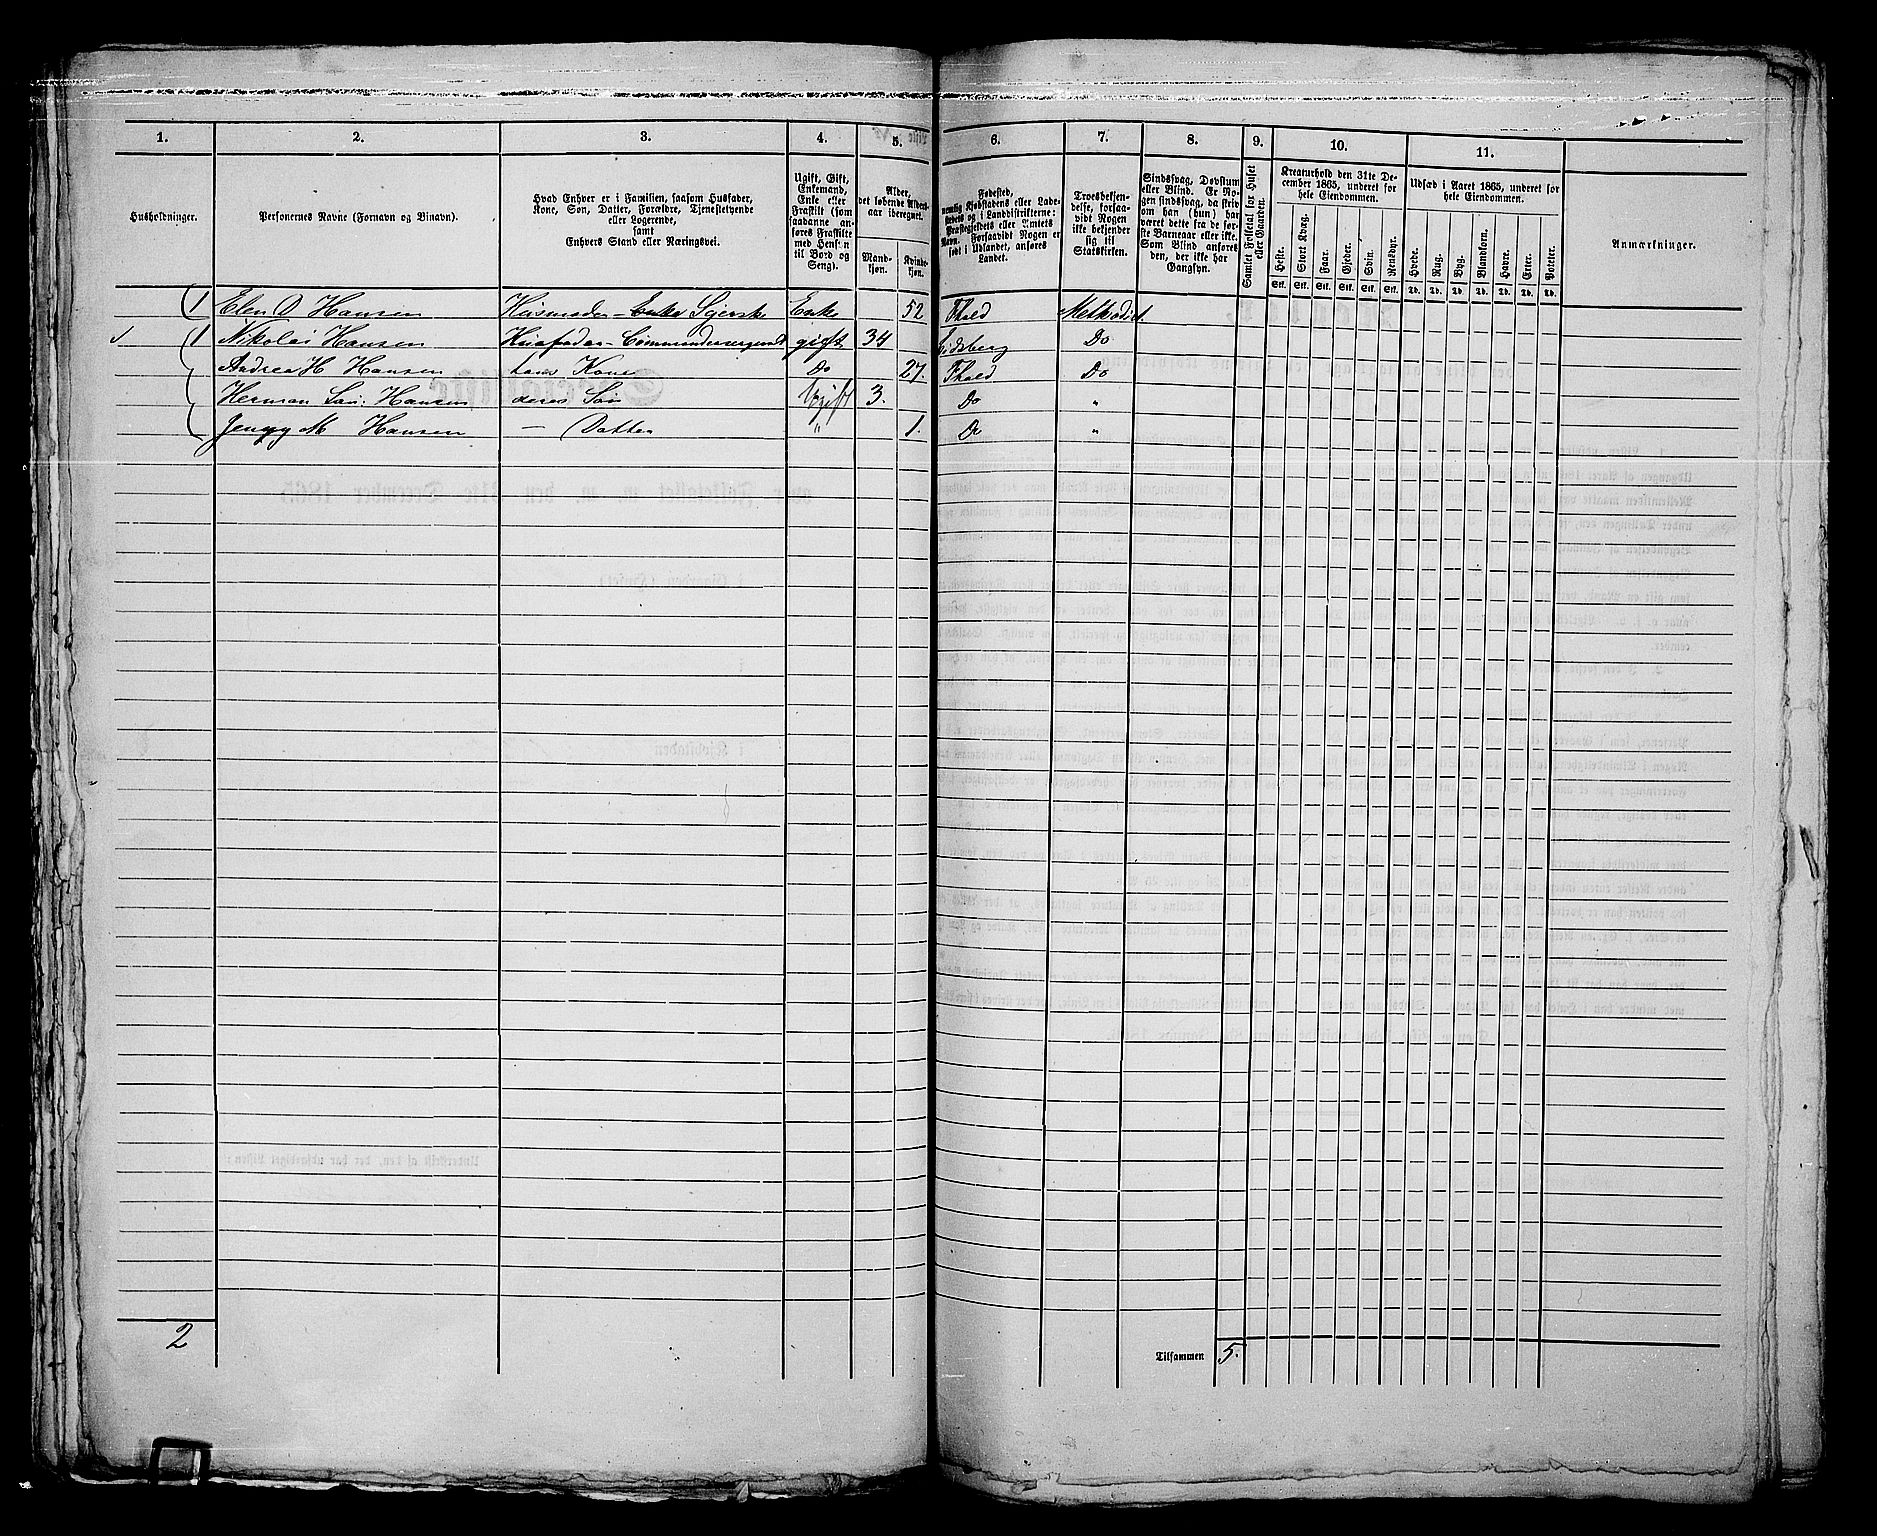 1. 2. 3. 4. 5. 6. 7. 8. 9. 10. 11.
Husholdninger.
Personernes Navne (Fornavn og Vinavn).
Hvad Enhver er i Familien, saasom Husfader,
Kone, Søn, Datter, Forældre, Tjenestetyende
eller Logerende,
samt
Enhvers Stand eller Næringsvei.
Ugift, Gift,
Enkemand,
Enke eller
Fraskilt (som
saadanne an-
føres Fraskilte
med Hensyn
til Bord og
Seng).
Alder,
det løbende Alders-
aar iberegnet.
Mand-
kjøn.
Kvinde-
kjøn.
Fødested,
nemlig Kjøbstadens eller Lade-
stedets og i Landdistrikterne:
Præstegjeldets eller Amtets
Navn. Forsaavidt Nogen er
født i Udlandet, anføres
Landet.
Troesbekjen-
delse, forsaa-
vidt Nogen
ikke bekjender
sig til
Statskirken.
Sindssvag, Døvstum
eller Blind. Er No-
gen sindssvag, da skriv
om han (hun) har
været dette fra de før-
ste Barneaar eller ikke.
Som Blind anføres
den, der ikke har
Gangsyn.
Samlet Folketal for Huset
eller Gaarden.
Kreaturhold den 31te De-
cember 1865, underet for
hele Eiendommen.
Heste. Stort Kvæg. Faar. Gjeder. Svin. Rensdyr.
Stk. Stk. Stk. Stk. Stk. Stk.
Udsæd i Aaret 1865, underet for
hele Eiendommen.
Hvede. Rug. Byg. Blandkorn. Havre. Erter. Poteter.
Td. Td. Td. Td. Td. Td. Td.
Anmærkninger.
1 Elen D Hansen Husmoder - Enke Enke 52 Fhald Methodist
1 Nikolai Hansen Husfader - Commandersergent gift 34 Eidsberg Do
Andrea H Hansen hans Kone Do 27. Fhald Do
Herman Hansen deres Søn Ugift 3. Do "
Jenny M Hansen — Datter " 1. Do "
2
Tilsammen 5.